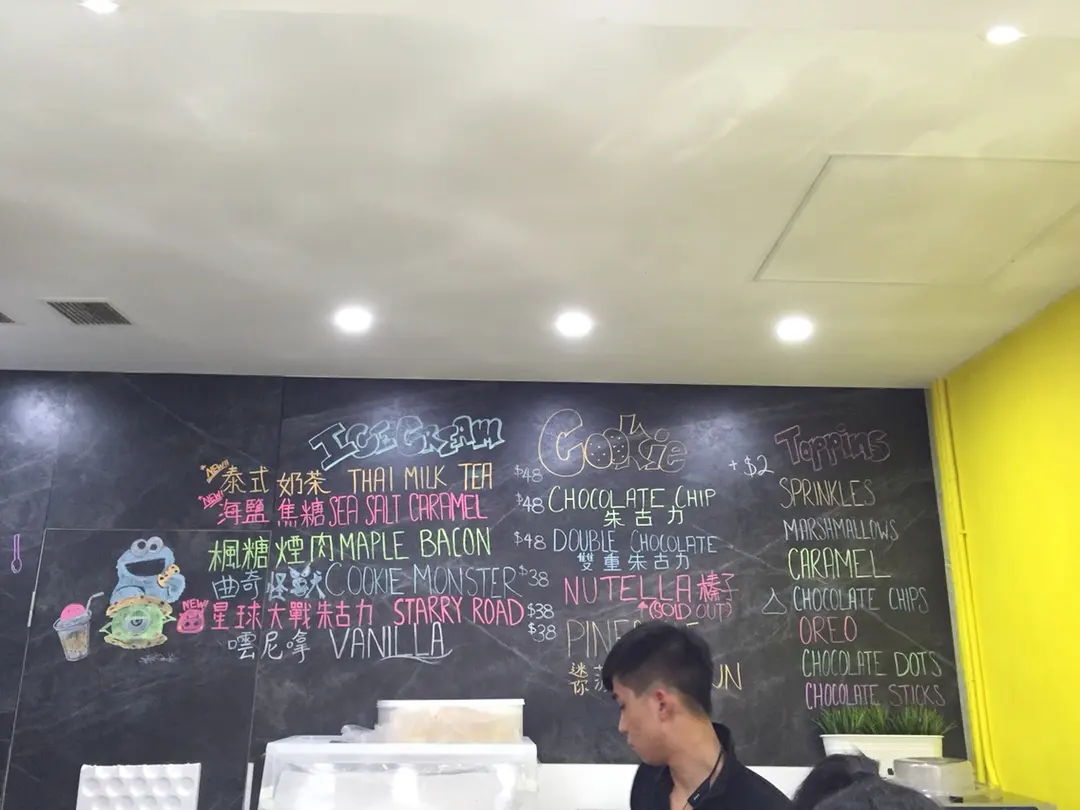 ICE CREAM
NEW!! 泰式 奶茶 THAI MILK TEA $48
NEW! 海鹽 焦糖 SEA SALT CARAMEL $48
楓糖 煙肉 MAPLE BACON $48
曲奇 怪獸 COOKIE MONSTER $38
NEW! 星球大戰朱古力 STARRY ROAD $38
嚐尼拿 VANILLA $38
Cookie
CHOCOLATE CHIP
朱古力
DOUBLE CHOCOLATE
雙重朱古力
NUTELLA 榛子
(SOLD OUT)
迷你
Toppins
+ $2
SPRINKLES
MARSHMALLOWS
CARAMEL
CHOCOLATE CHIPS
OREO
CHOCOLATE DOTS
CHOCOLATE STICKS